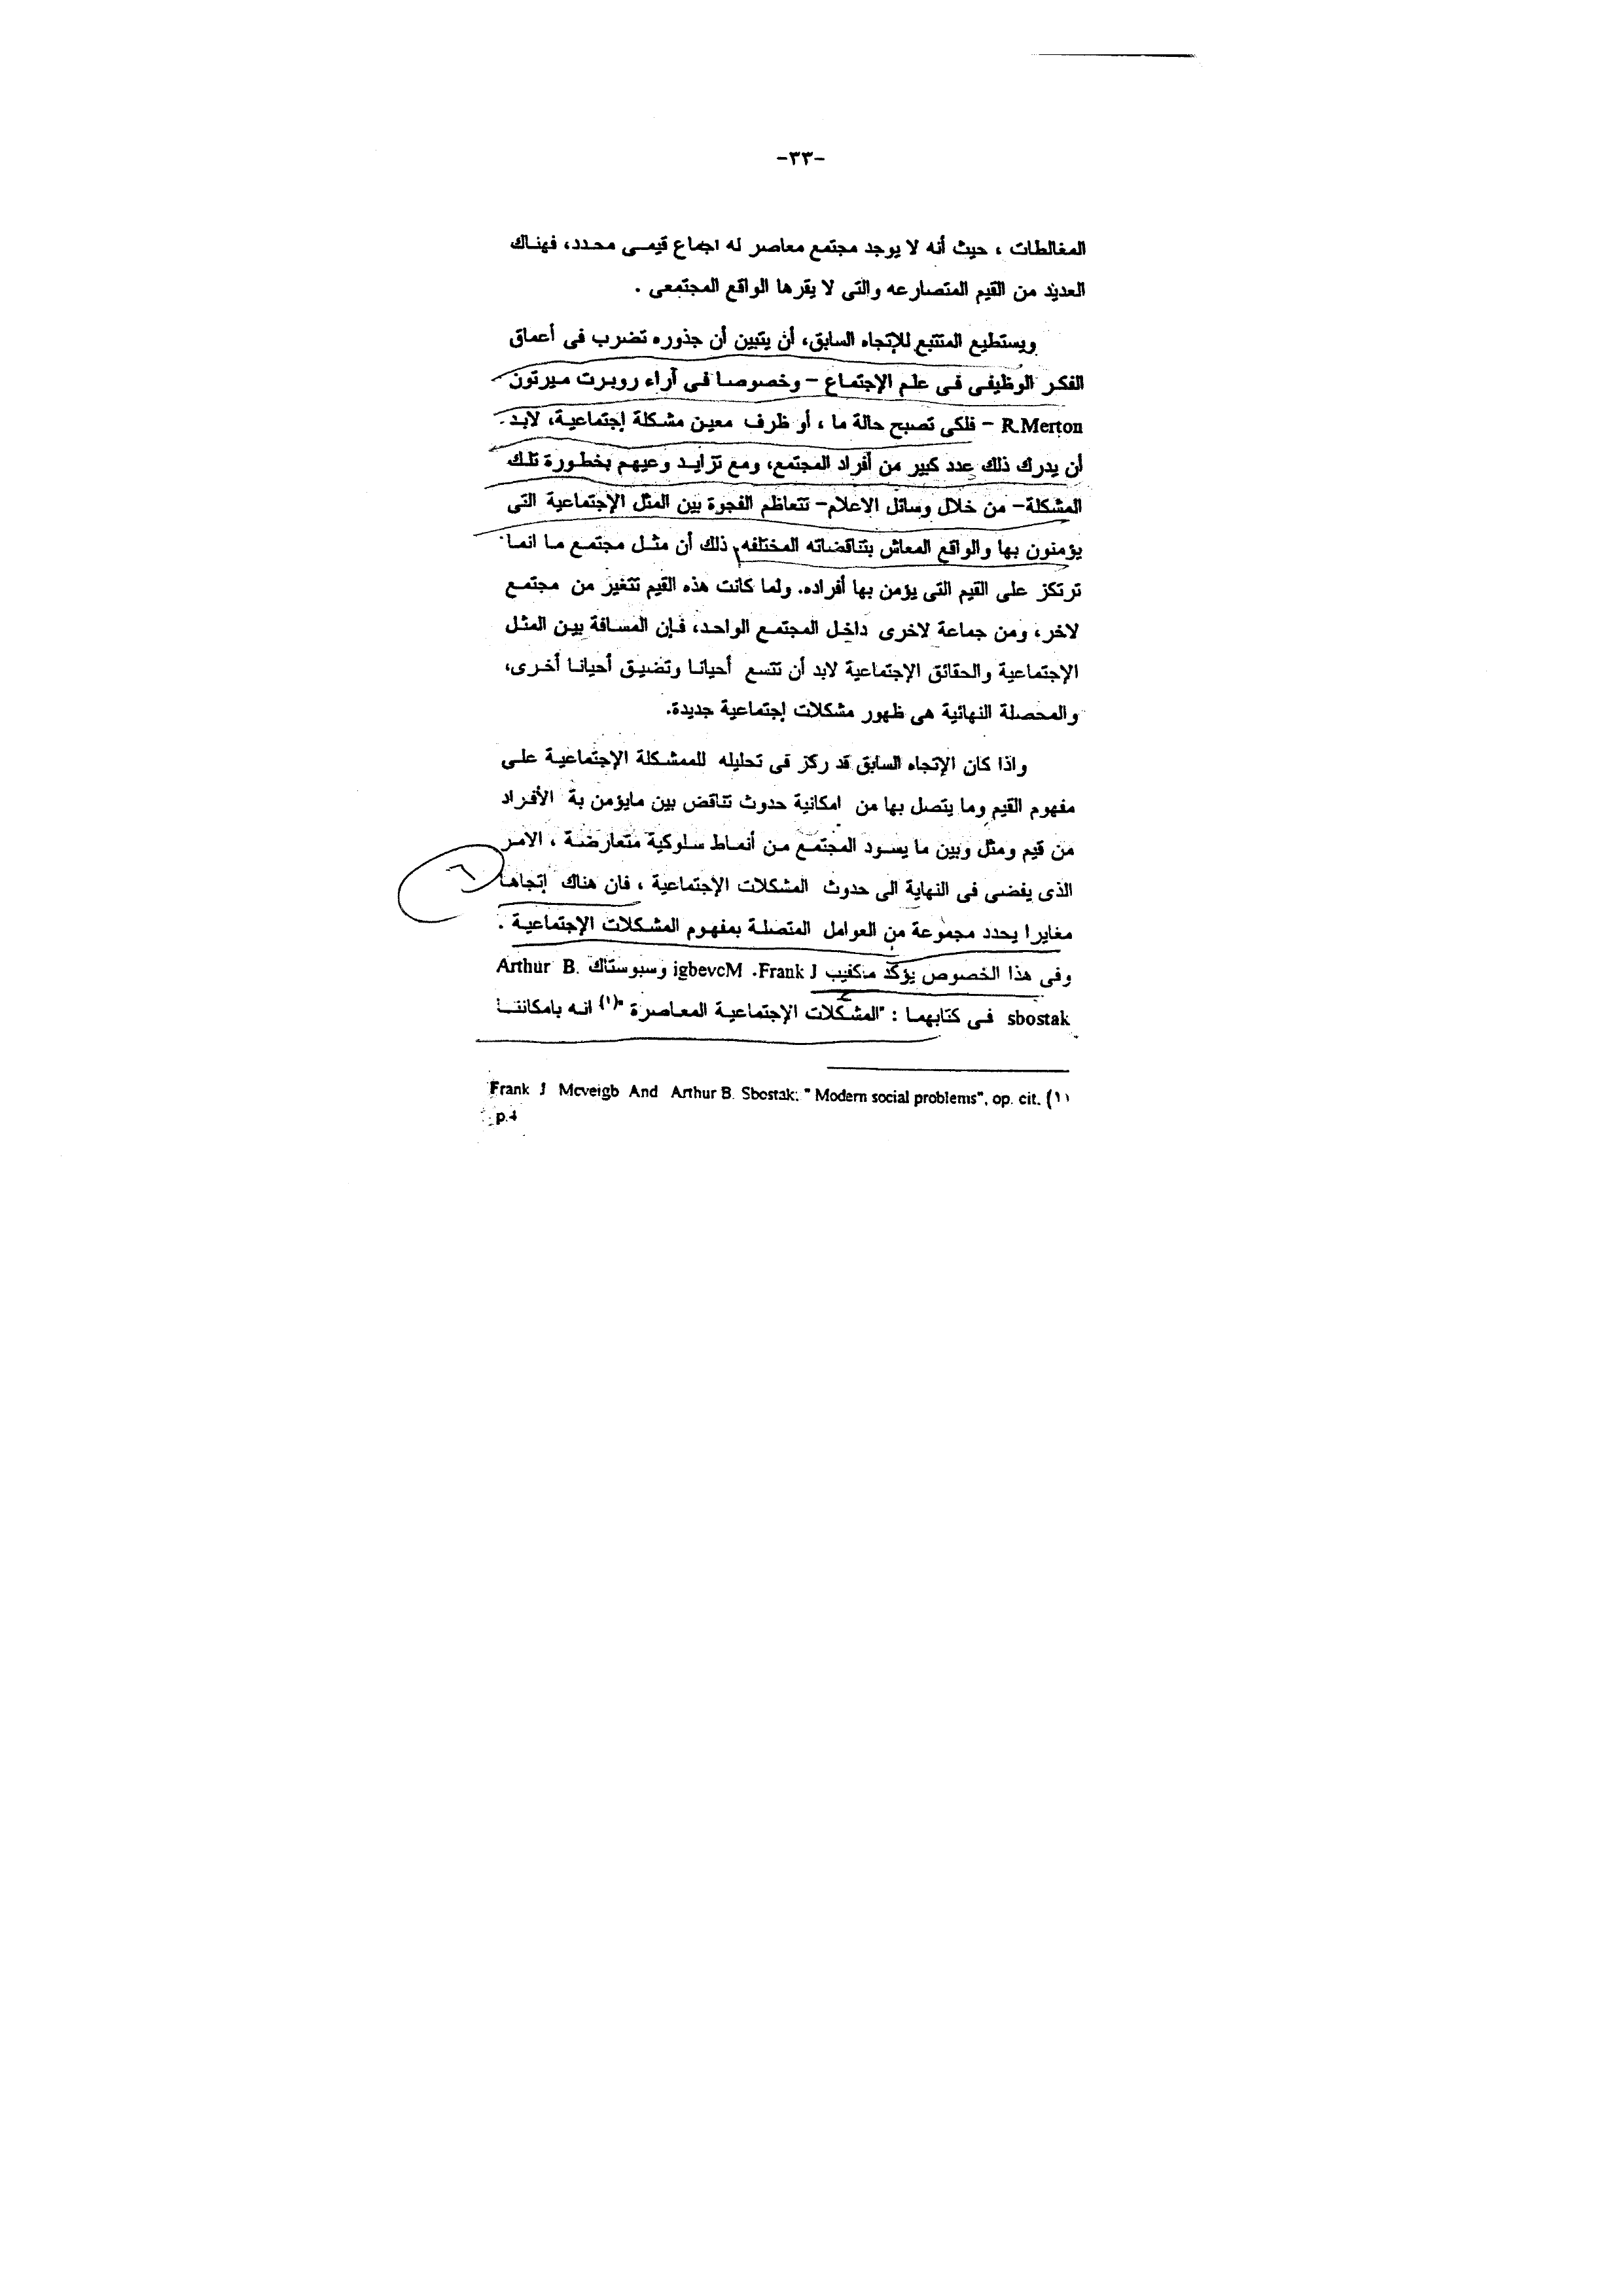 -٣٣-
المغالطات ، حيث أنه لا يوجد مجتمع معاصر له اجماع قيمى محدد، فهناك
العديد من القيم المتصارعه والتى لا يقرها الواقع المجتمعى .
ويستطيع المتتبع للإتجاه السابق، أن يتبين أن جذوره تضرب فى أعماق
الفكر الوظيفى فى علم الإجتماع – وخصوصا فى آراء روبرت ميرتون
R.Merton – فلكى تصبح حالة ما ، أو ظرف معين مشكلة إجتماعية، لابد
أن يدرك ذلك عدد كبير من أفراد المجتمع، ومع تزايد وعيهم بخطورة تلك
المشكلة– من خلال وسائل الاعلام– تتعاظم الفجوة بين المثل الإجتماعية التى
يؤمنون بها والواقع المعاش بتناقضاته المختلفه، ذلك أن مثل مجتمع ما انما
ترتكز على القيم التى يؤمن بها أفراده. ولما كانت هذه القيم تتغير من مجتمع
لاخر، ومن جماعة لاخرى داخل المجتمع الواحد، فإن المسافة بين المثل
الإجتماعية والحقائق الإجتماعية لابد أن تتسع أحيانا وتضيق أحيانا أخرى،
والمحصلة النهائية هى ظهور مشكلات إجتماعية جديدة.
واذا كان الإتجاه السابق قد ركز فى تحليله للممشكلة الإجتماعية على
مفهوم القيم وما يتصل بها من امكانية حدوث تناقض بين مايؤمن بة الأفراد
من قيم ومثل وبين ما يسود المجتمع من أنماط سلوكية متعارضة ، الامر
الذى يفضى فى النهاية الى حدوث المشكلات الإجتماعية ، فان هناك إتجاها
٦
مغايرا يحدد مجموعة من العوامل المتصلة بمفهوم المشكلات الإجتماعية .
وفى هذا الخصوص يؤكد مكفيب Frank J. igbevcM وسبوستاك Arthur B.
sbostak فى كتابهما : "المشكلات الإجتماعية المعاصرة "(١) انه بامكاننا
(١) Frank J Mcveigb And Arthur B. Sbostak: "Modern social problems", op. cit.
p.4